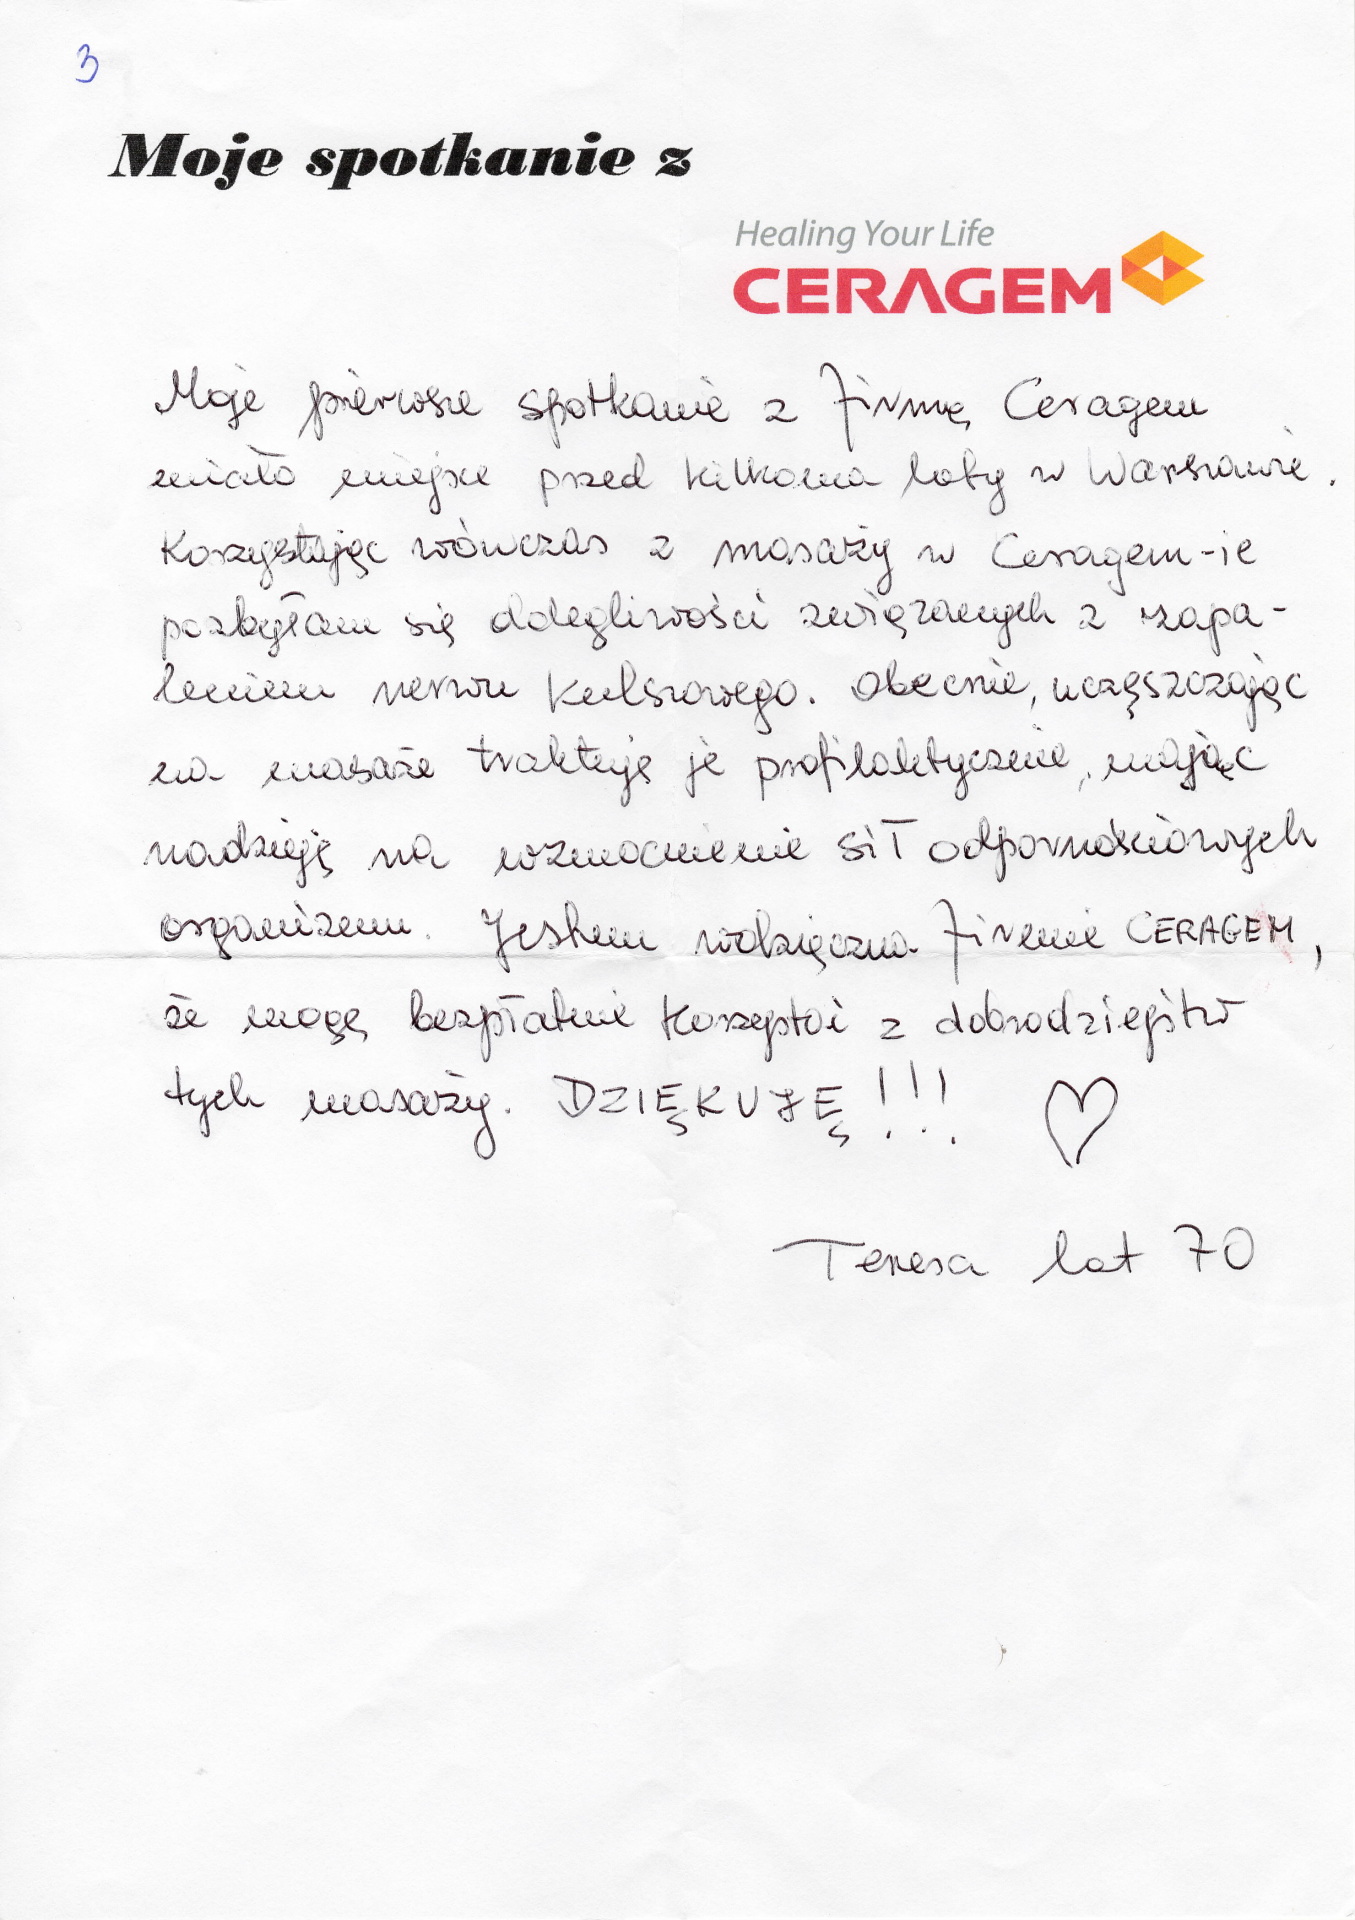 3
Moje spotkanie z
Healing Your Life
CERAGEM
Moje pierwsze spotkanie z Firmą Ceragem
miało miejsce przed kilkoma laty w Warszawie.
Korzystając wówczas z masaży w Ceragem-ie
pozbyłam się dolegliwości związanych z zapa-
leniem nerwu kulszowego. Obecnie, uczęszczając
na masaże traktuję je profilaktycznie, mając
nadzieję na wzmocnienie sił odpornościowych
organizmu. Jestem wdzięczna Firmie CERAGEM,
że mogę bezpłatnie korzystać z dobrodziejstw
tych masaży. DZIĘKUJĘ!!!
Teresa lat 70